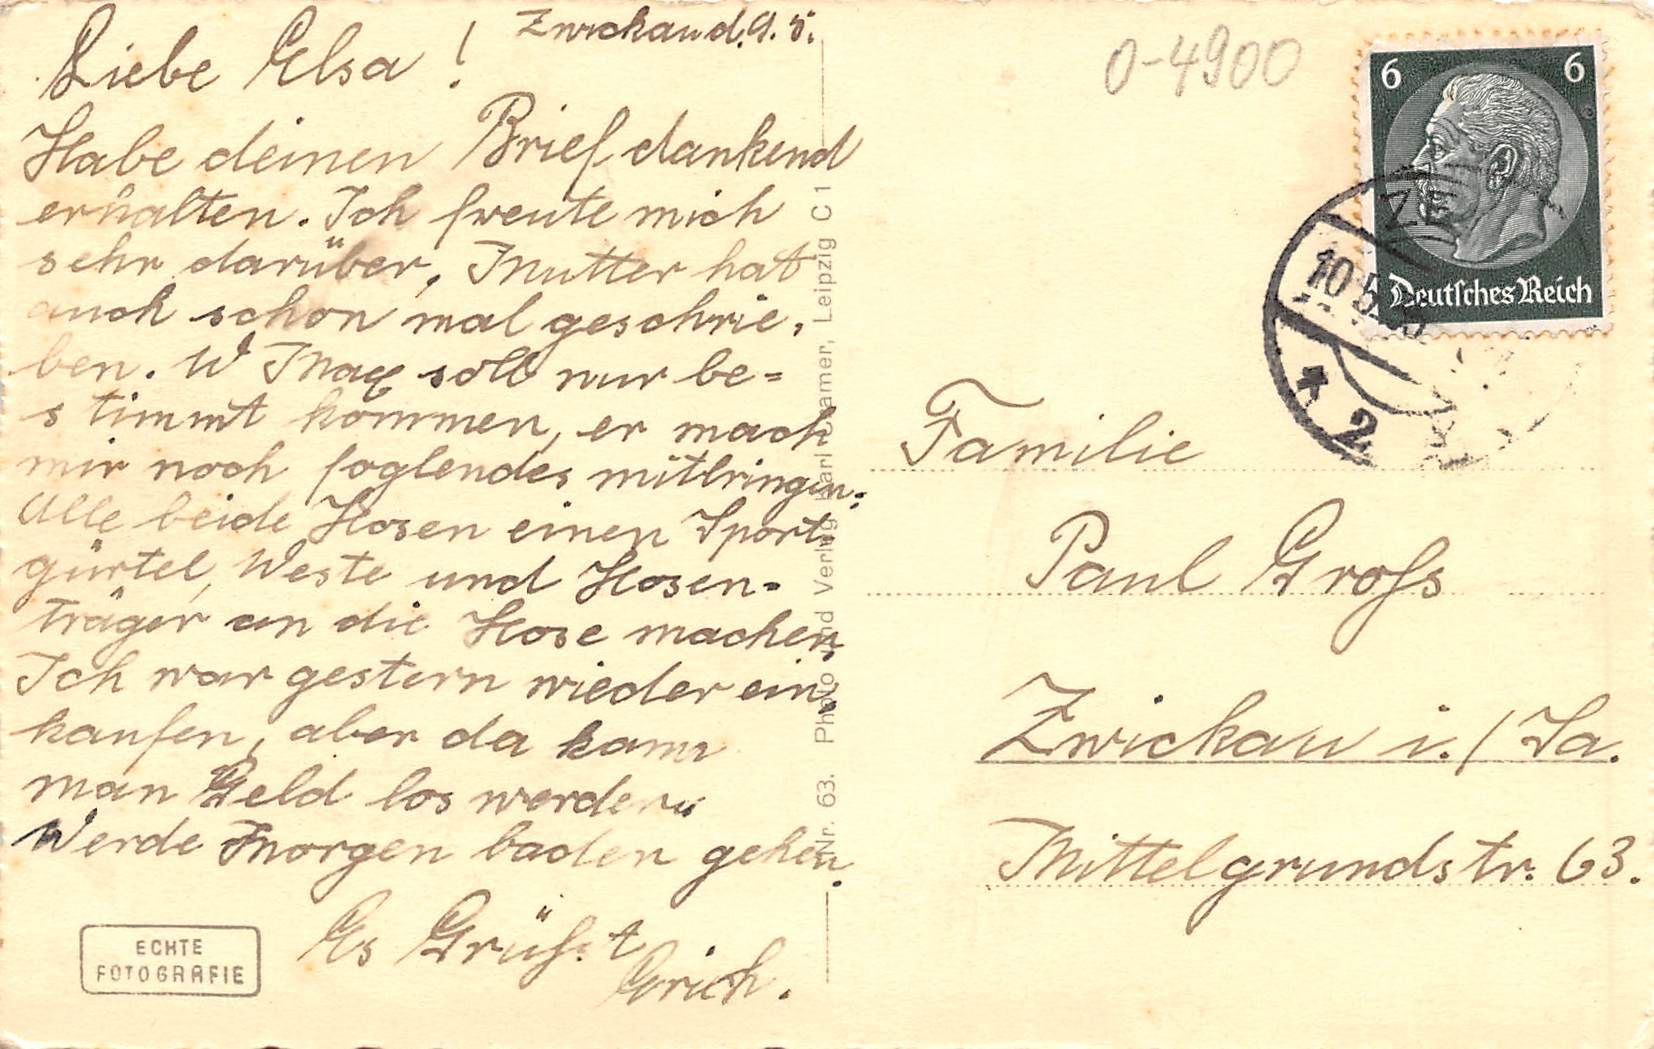 Zwickau d. 9. 5.
Liebe Elsa!
Habe deinen Brief dankend
erhalten. Ich freute mich
sehr darüber, Mutter hat
auch schon mal geschrie,
ben. W Max soll nur be=
stimmt kommen, er mach
mir noch foglendes mitbringen:
Alle beide Hosen einen Sport-
gürtel, Weste und Hosen-
träger an die Hose machen,
Ich war gestern wieder ein,
kaufen, aber da kann
man Geld los werden
Werde Morgen baden gehen.
Es Grüßt
Erich.
ECHTE
FOTOGRAFIE
Nr. 63. Photo und Verlag Karl Cramer, Leipzig C 1
0-4900
6 6
Deutsches Reich
ZE
10.5.
* 2
Familie
Paul Groſs
Zwickau i./Sa.
Mittelgrundstr. 63.